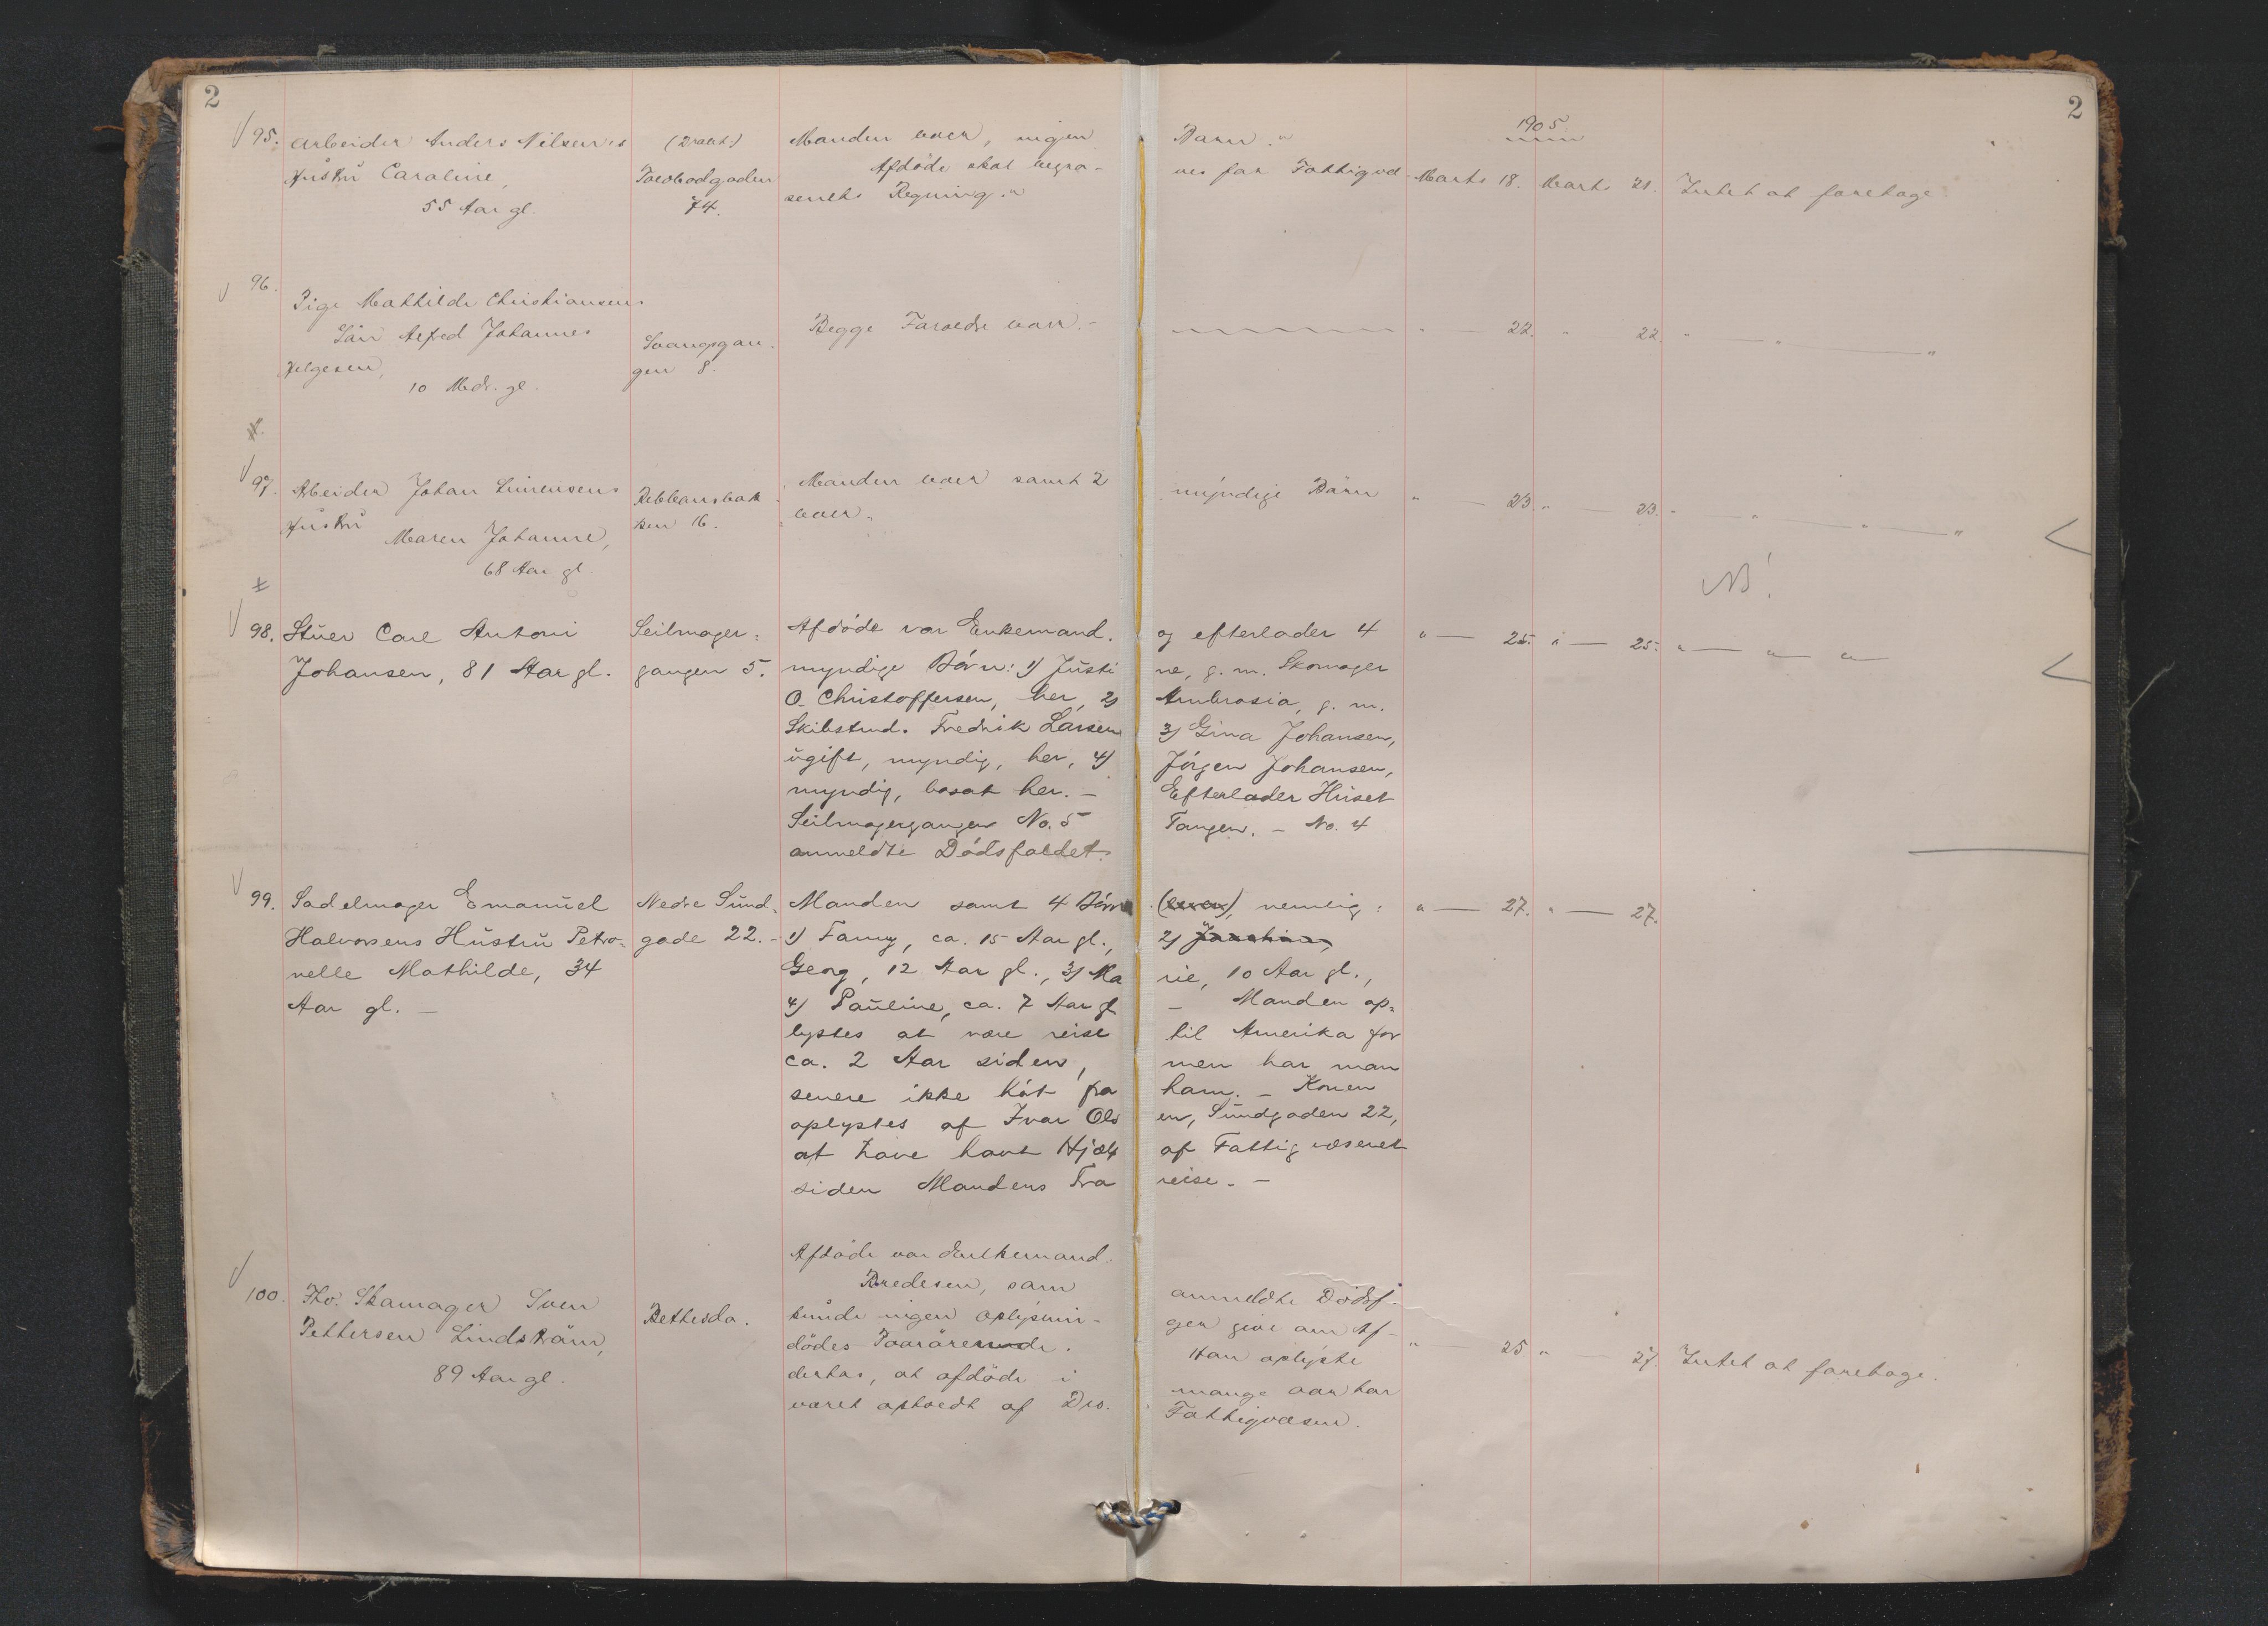 2
2
1905
95. Arbeider Anders Nilsens (2 rækt.) Manden lever, ingen Barn."
Hustru Caroline, Tordbodgaden Afdøde skal begra- ves for Fattigvæ- Marts 18. Marts 21. Intet at foretage
55 Aar gl. 74. senets Regning."
96.
Pige Mathilde Christiansens
Sön Alfred Johannes Svangsgan- Begge Forældre lever.- " — 22. " 22. " — " — "
Helgesen, gen 8.
10 Mdr. gl.
97. Arbeider Johan Simensens Rebbansbak- Manden lever samt 2 myndige Börn " — 23. " — 23. " — " — " — "
Hustru ken 16. lever.
Maren Johanne,
68 Aar gl.
NB!
98. Stuer Carl Antoni Seilmager- Afdöde var Enkemand. og efterlader 4 " — 25. " — 25. " — " — "
Johansen, 81 Aar gl. gangen 5. myndige Börn: 1) Justi ne, g. m. Skomager
O. Christoffersen, her, 2) Ambrosia, g. m.
Skibstmd. Fredrik Larsen 3) Gina Johansen,
ugift, myndig, her, 4) Jörgen Johansen,
myndig, bosat her. — Efterlader Huset
Seilmagergangen No. 5 Tangen. — No. 4
anmeldte Dödsfaldet.
99. Sadelmager Emanuel Nedre Sund- Manden samt 4 Börn (lever), nemlig: " — 27. " — 27.
Halvorsens Hustru Petro- gade 22. — 1) Fanny, ca. 15 Aar gl., 2)
nelle Mathilde, 34 Georg, 12 Aar gl., 3) Ma rie, 10 Aar gl.,
Aar gl. — 4) Pauline, ca. 7 Aar gl. — Manden op-
lystes at være reist til Amerika for
ca. 2 Aar siden, men har man
senere ikke hört fra ham. — Konen
oplystes af Ivar Ols en, Sundgaden 22,
at have havt Hjælp af Fattigvæsenet
siden Mandens Fra reise. —
Afdöde var Enkemand.
Bredesen, som anmeldte Dödsf-
100. Fhv. Skomager Sven Bethesda. kunde ingen oplysnin- ger give om Af-
Pettersen Lindström, dödes Paarörende. Han oplyste " — 25 " — 27. Intet at foretage.
89 Aar gl. derhos, at afdöde i mange aar har
været aktoedt af Dro. Fattigvæsen.